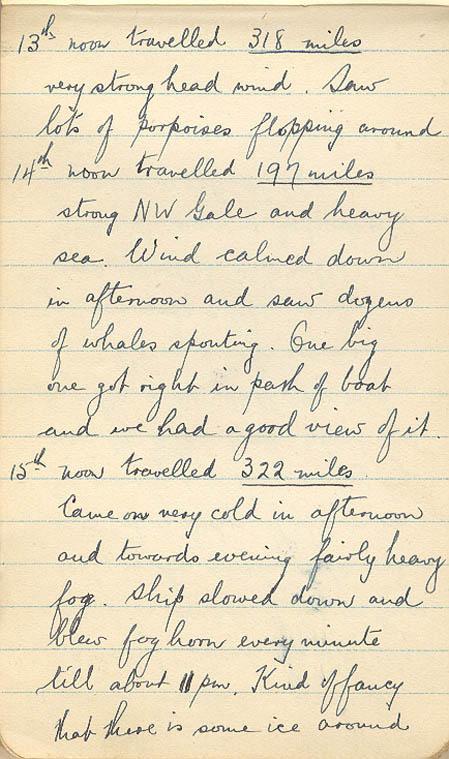 13th noon travelled 318 miles
very strong head wind. Saw
lots of porpoises flopping around
14th noon travelled 197 miles
strong NW Gale and heavy
sea. Wind calmed down
in afternoon and saw dozens
of whales spouting. One big
one got right in path of boat
and we had a good view of it.
15th noon travelled 322 miles.
Came on very cold in afternoon
and towards evening fairly heavy
fog. Ship slowed down and
blew fog horn every minute
till about 11 pm. Kind of fancy
that there is some ice around